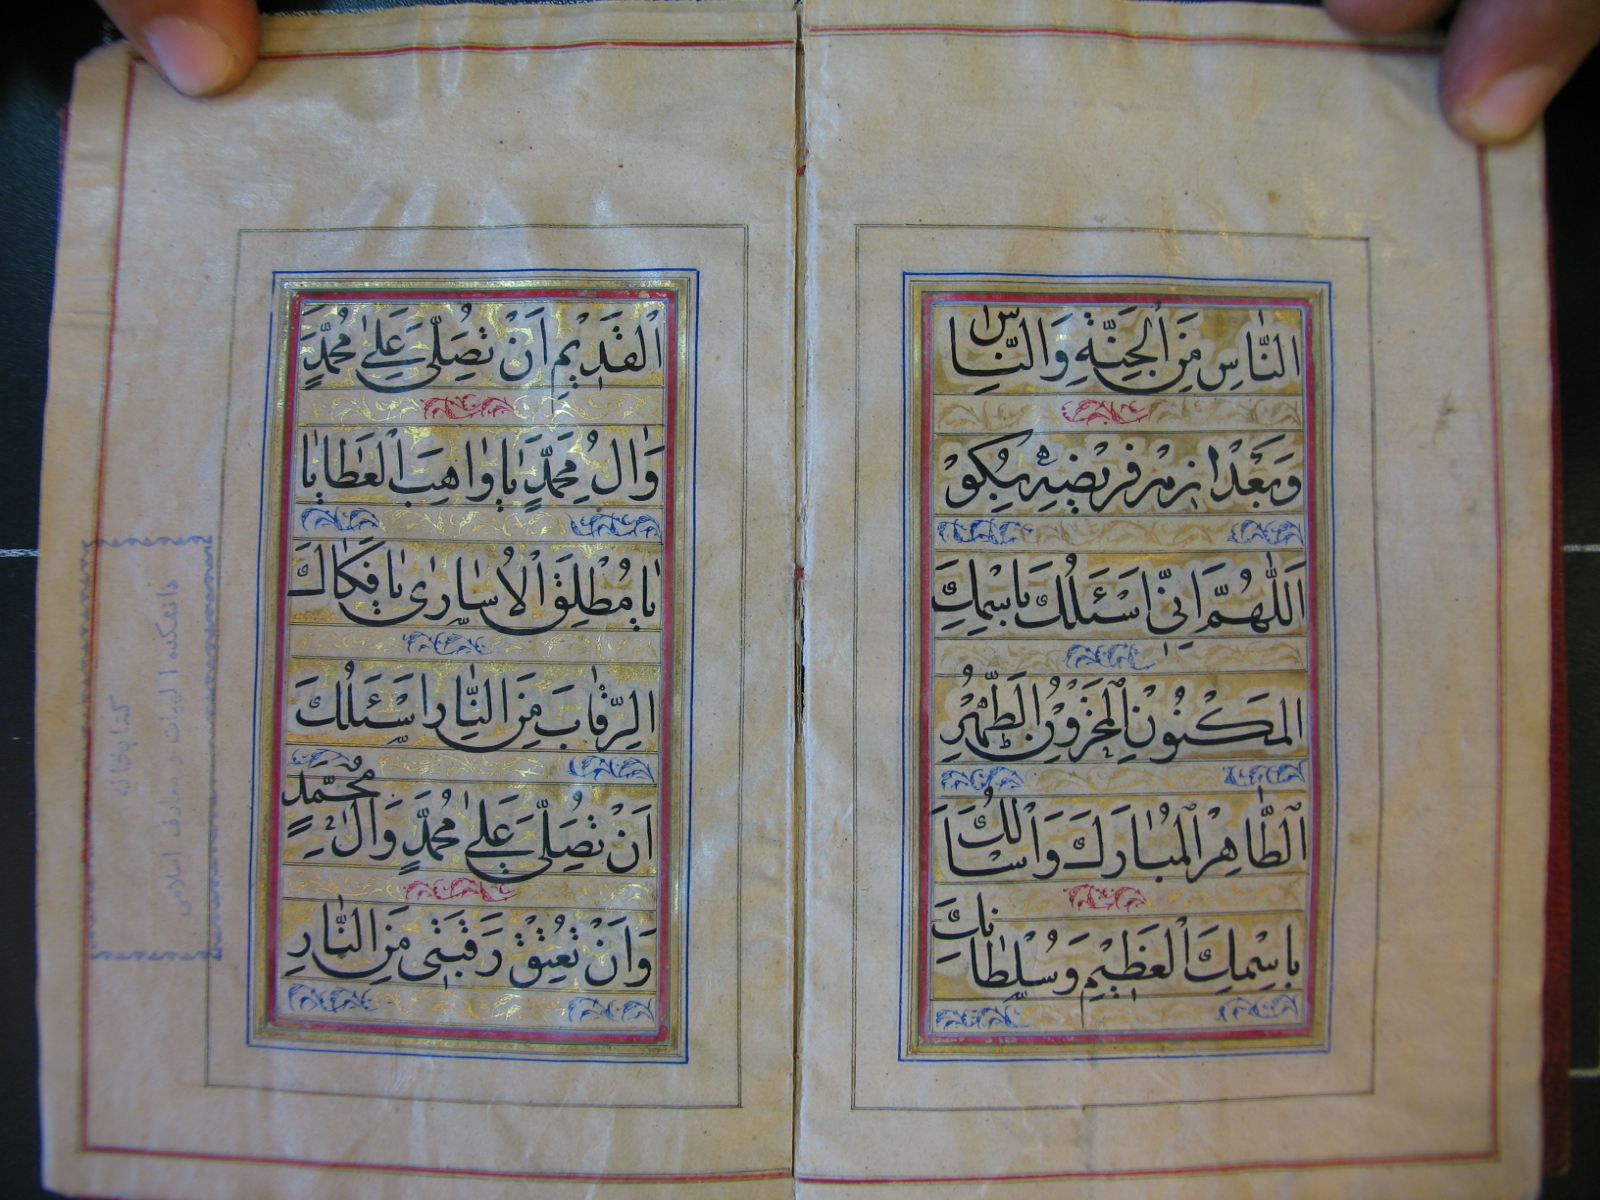 النَّاسِ مِنَ الْجِنَّةِ وَالنَّاسِ
وَبَعْد از هر فریضه بگو
اَللّٰهُمَّ اِنّی اَسْئَلُكَ بِاسْمِكَ
المَكْنُونِ الْمَخْزُونِ الطُّهْرِ
الطَّاهِرْ الْمُبٰارَكَ وَاَسْاَلُكَ
بِاسْمِكَ الْعَظٖیمِ وَسُلْطٰانِكَ
الْقَدٖیمِ اَنْ تُصَلّیَ عَلیٰ مُحَمَّدٍ
وَاٰلِ مُحَمَّدٍ یٰا وٰاهِبَ الْعَطٰایٰا
یٰا مُطْلِقَ الْاُسٰارٰی یٰا فَكّٰاكَ
الرِّقٰابِ مِنَ النّٰارِ اَسْئَلُكَ
اَنْ تُصَلِّیَ عَلیٰ مُحَمَّدٍ وَاٰلِ مُحَمَّدٍ
وَاَنْ تُعْتِقَ رَقَبَتٖی مِنَ النّٰارِ
كتابخانه
دانشكده الهیات و معارف اسلامی